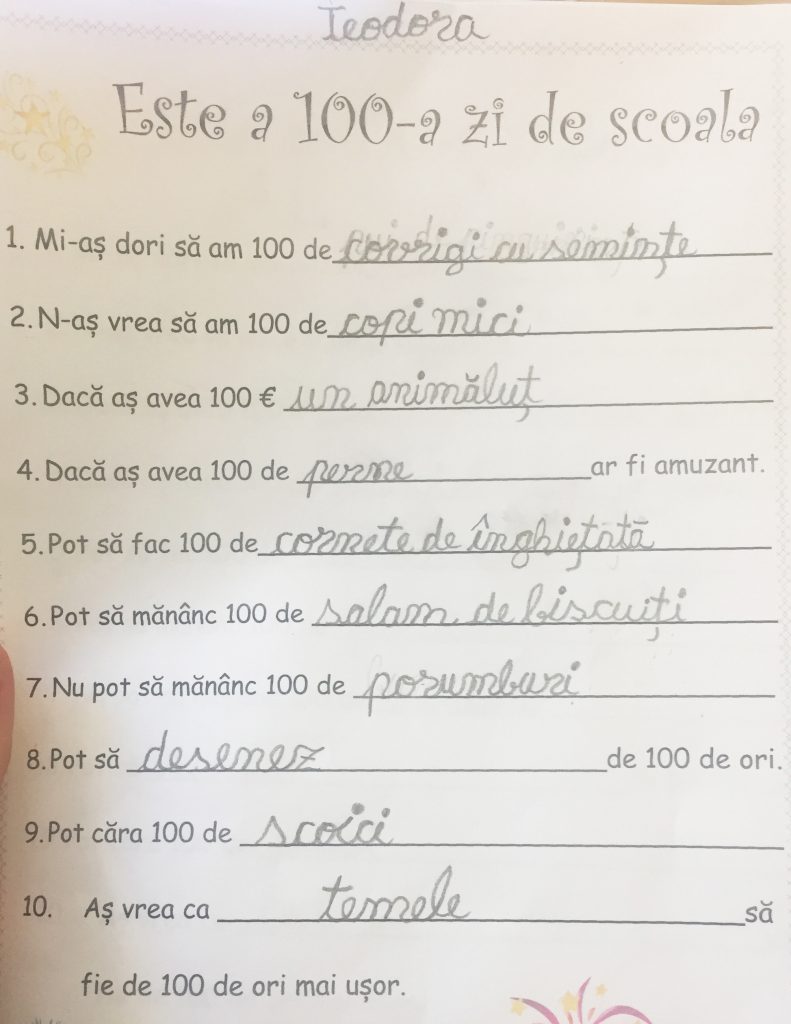 Teodora
Este a 100-a zi de scoala
1. Mi-aș dori să am 100 de covrigi cu semințe
2. N-aș vrea să am 100 de copi mici
3. Dacă aș avea 100 € un animăluț
4. Dacă aș avea 100 de perne ar fi amuzant.
5. Pot să fac 100 de cornete de înghețată
6. Pot să mănânc 100 de salam de biscuiți
7. Nu pot să mănânc 100 de porumburi
8. Pot să desenez de 100 de ori.
9. Pot căra 100 de scoici
10. Aș vrea ca temele să
fie de 100 de ori mai ușor.